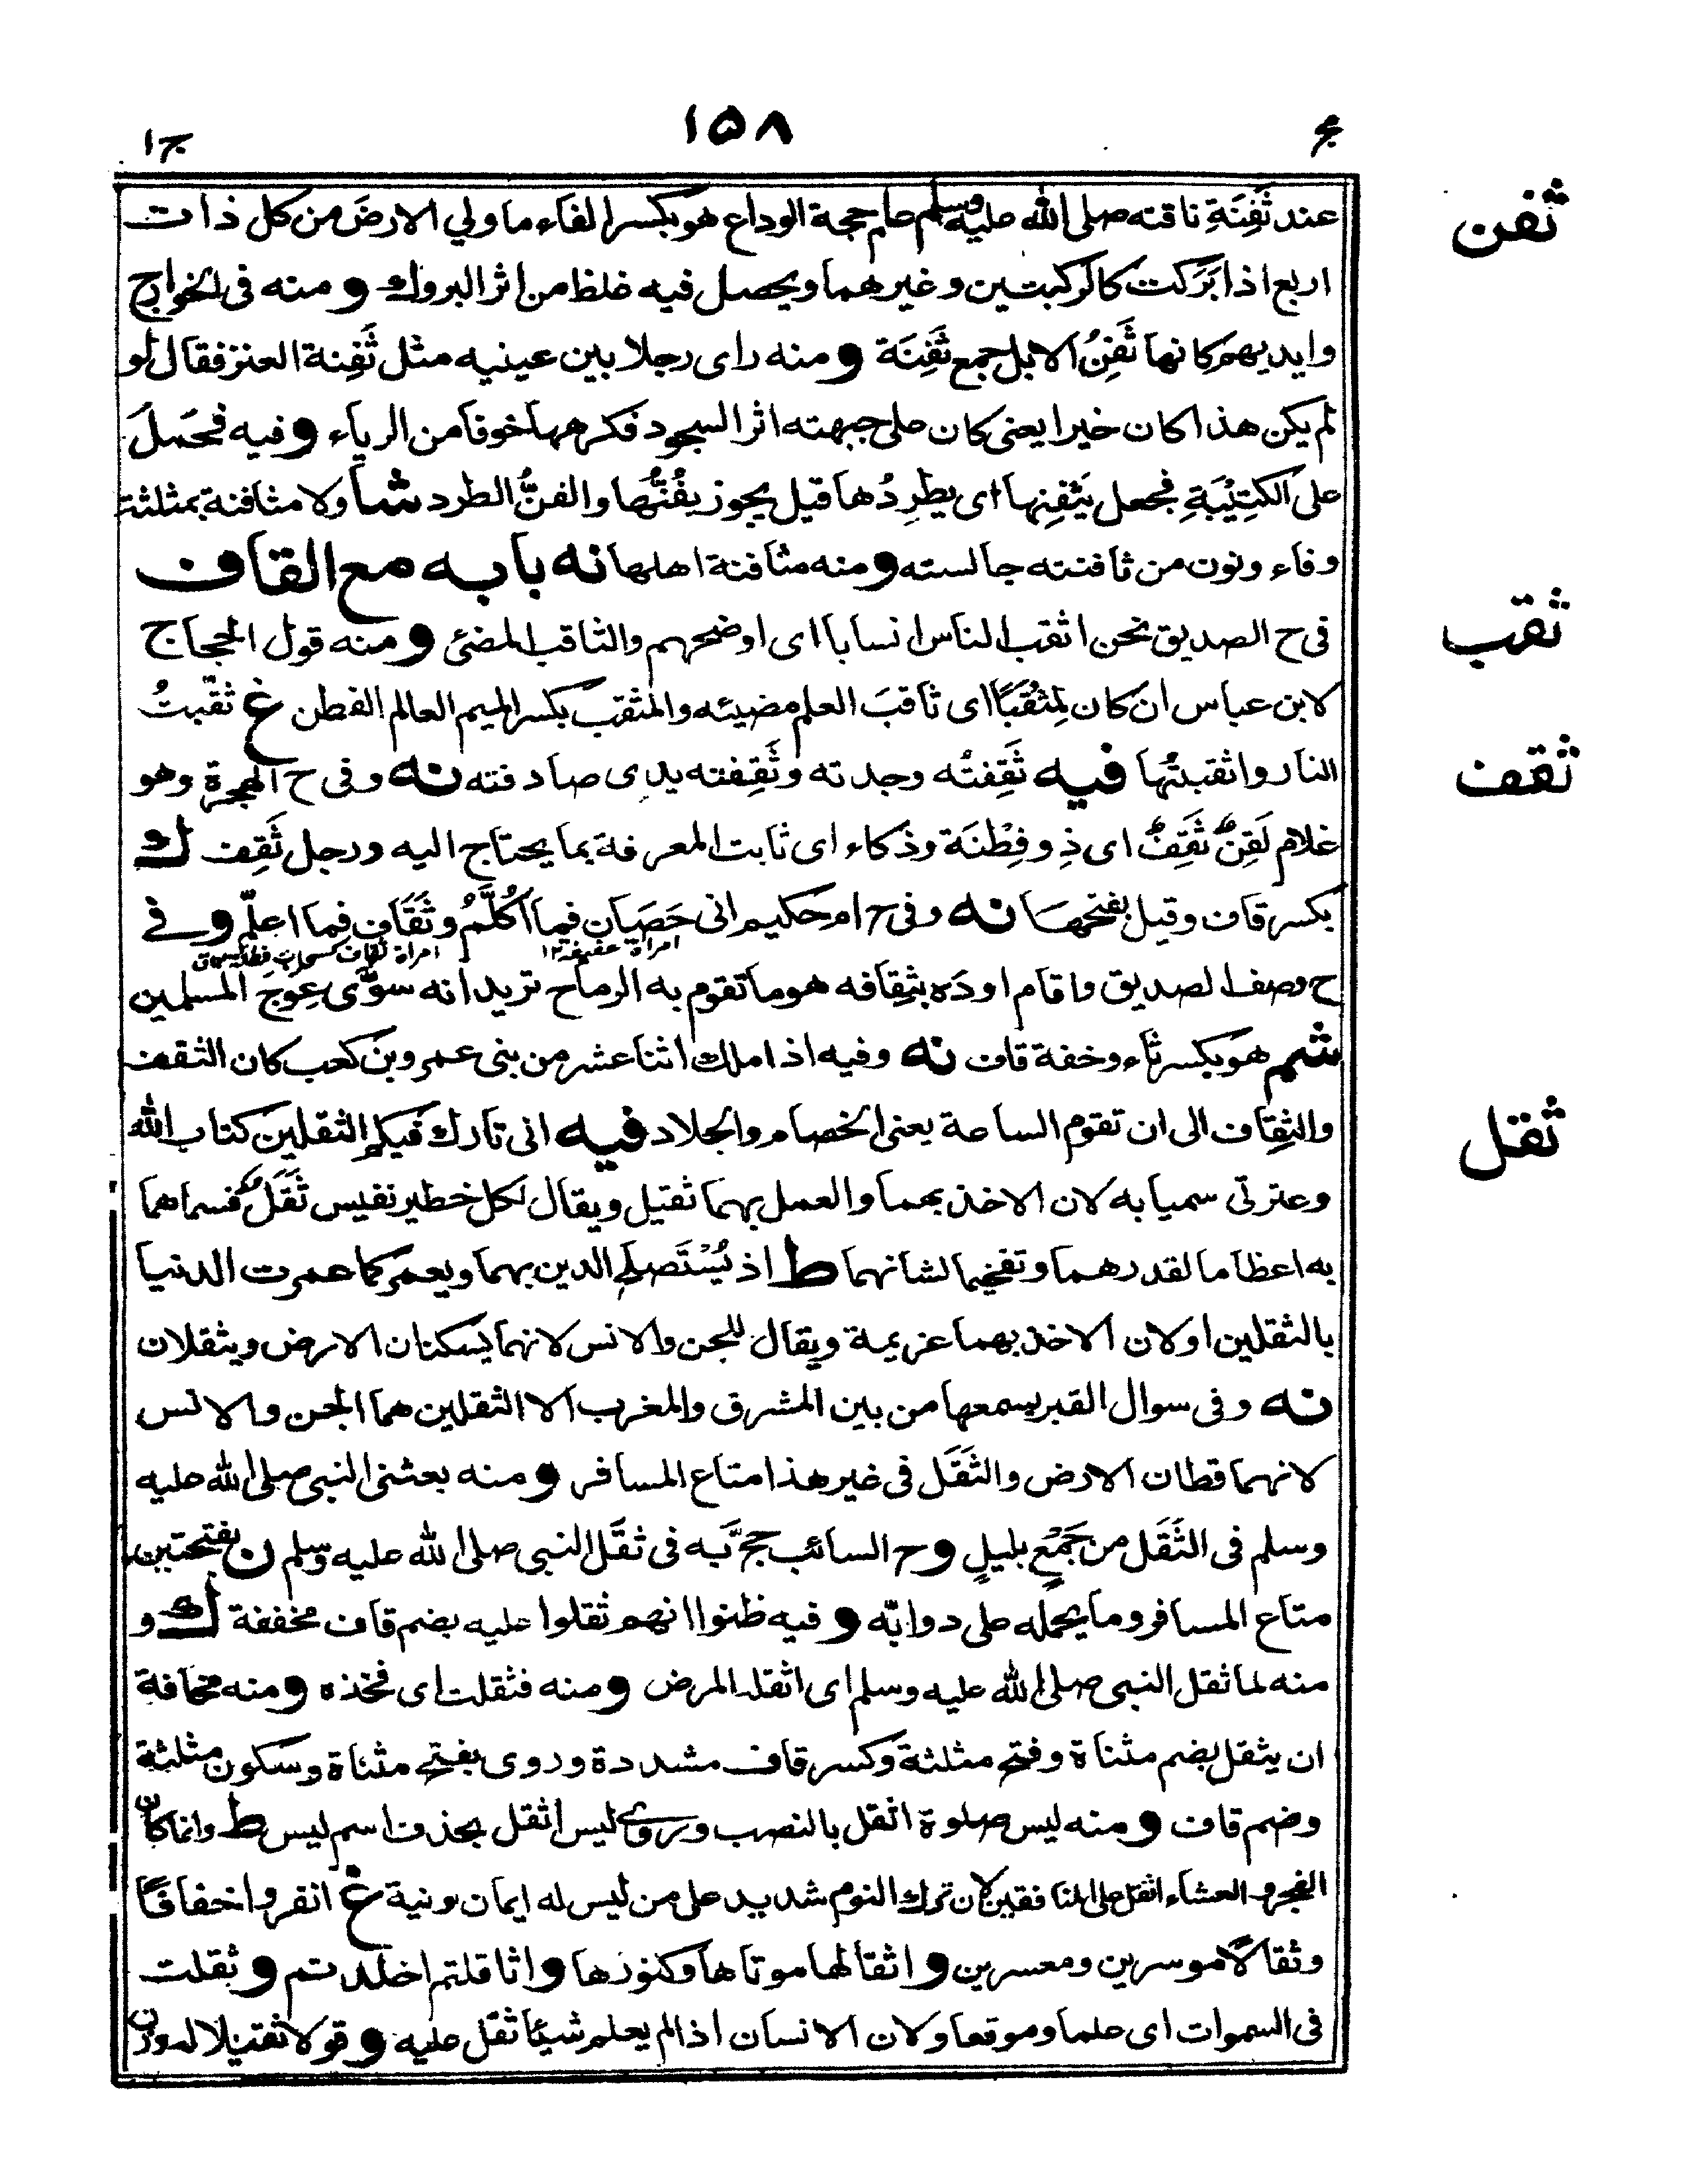 ج ١٥٨ ج١
ثفن
عند ثَفِنَةِ ناقته صلى الله عليه وسلم عام حجة الوداع هو بكسر الفاء ما ولي الارضَ من كل ذات
اربع اذا بَرَكت كالركبتين وغيرهما ويحصل فيه غلظ من اثر البروك و منه فى الخوارج
وايديهم كانها ثَفِنُ الابل جمع ثَفِنَة و منه راى رجلا بين عينيه مثل ثَفِنة العنز فقال لو
لم يكن هذا كان خيرا يعنى كان على جبهته اثر السجود فكرهها خوفا من الرياء و فيه فحَمَلَ
على الكتِيْبَةِ فجعل يَثفِنها اى يطرِدُها قيل يجوز يفُنُّها والفنُّ الطرد شا ولا مثافنة بمثلثة
وفاء ونون من ثافنته جالسته و منه مثافنة اهلها نه باب مع القاف
ثقب
فى ح الصديق نحن اثقب الناس انسابا اى اوضحهم والثاقب المضئ و منه قول الحجاج
لابن عباس ان كان لَمِثْقَبًا اى ثاقبَ العلم مضيئه والمثقب بكسر الميم العالم الفطن غ ثقّبتُ
ثقف
النار واثقبتُها فيه ثَقِفتُه وجدته وثَقِفته يدى صادفته نه وفى ح الهجرة وهو
غلام لَقِنٌ ثَقِفٌ اى ذو فِطْنَة وذكاء اى ثابت المعرفة بما يحتاج اليه ورجل ثَقِف ك
بكسر قاف وقيل بفتحها نه وفى ح ام حكيم انى حَصَان فما اُكلَّمُ وثَقَاف فما اعلّم و فے
امراة عفيفة ١٢
ح وصف الصديق واقام اودَه بثِقافه هو ما تقوم به الرماح تريد انه سوّى عِوجَ المسلمين
شم هو بكسر ثاء وخفة قاف نه وفيه اذا ملك اثنا عشر من بنى عمرو بن كعب كان الثقف
ثقل
والثِقاف الى ان تقوم الساعة يعنى الخصام والجلاد فيه انى تارك فيكم الثقلين كتاب الله
وعترتى سميا به لان الاخذ بهما والعمل بهما ثقيل ويقال لكل خطير نفيس ثَقَل فسماهما
به اعظاما لقدرهما وتفخيما لشانهما ط اذ يُسْتَصلَح الدين بهما ويعمر كما عمرت الدنيا
بالثقلين او لان الاخذ بهما عزيمة ويقال للجن والانس لانهما يسكنان الارض ويثقلان
نه وفى سوال القبر يسمعها من بين المشرق والمغرب الا الثقلين هما الجن والانس
لانهما قطان الارض والثَقَل فى غير هذا متاع المسافر و منه بعثنى النبى صلى الله عليه
وسلم فى الثَقَل من جَمْعٍ بليلٍ و ح السائب حج بّه فى ثقَل النبى صلى الله عليه وسلم ن بفتحتين
متاع المسافر وما يحمله على دوابّه و فيه ظنوا انهم ثقلوا عليه بضم قاف مخففة ك و
منه لما ثقل النبى صلى الله عليه وسلم اى اثقله المرض و منه فثقلت اى فخذه و منه مخافة
ان يثقل بضم مثناة وفتح مثلثة وكسر قاف مشددة وروى بفتح مثناة وسكون مثلثة
وضم قاف و منه ليس صلوة اثقل بالنصب وروے ليس اثقل بحذف اسم ليس ط وانما كان
الفجر والعشاء اثقل على المنافقين لان ترك النوم شديد على من ليس له ايمان ونية غ انفروا خفافًا
وثقالًا موسرين ومعسرين و اثقالها موتاها وكنوزها و اثاقلتم اخلدتم و ثقلت
فى السموات اى علما وموقعا ولان الانسان اذا لم يعلم شيئا ثقل عليه و قولا ثقيلا له وزن